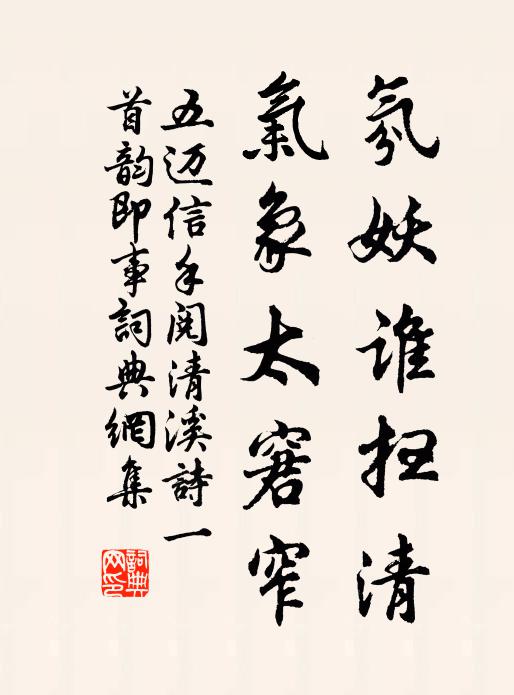 氛妖谁扫清
氣象太窘窄
五迈信手阅清溪詩一
首韵即事詞典網集
詞典網印